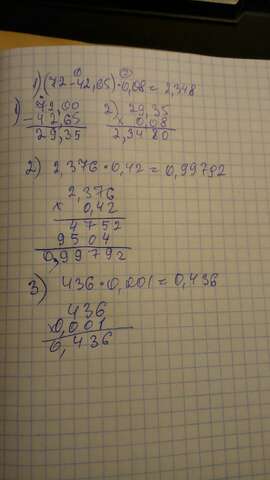 1) (72 - 42,65) · 0,08 = 2,348
1) 72,00  2) 29,35
- 42,65  x 0,08
29,35  2,3480
2) 2,376 · 0,42 = 0,99792
2,376
x 0,42
4752
9504
0,99792
3) 436 · 0,001 = 0,436
436
x 0,001
0,436